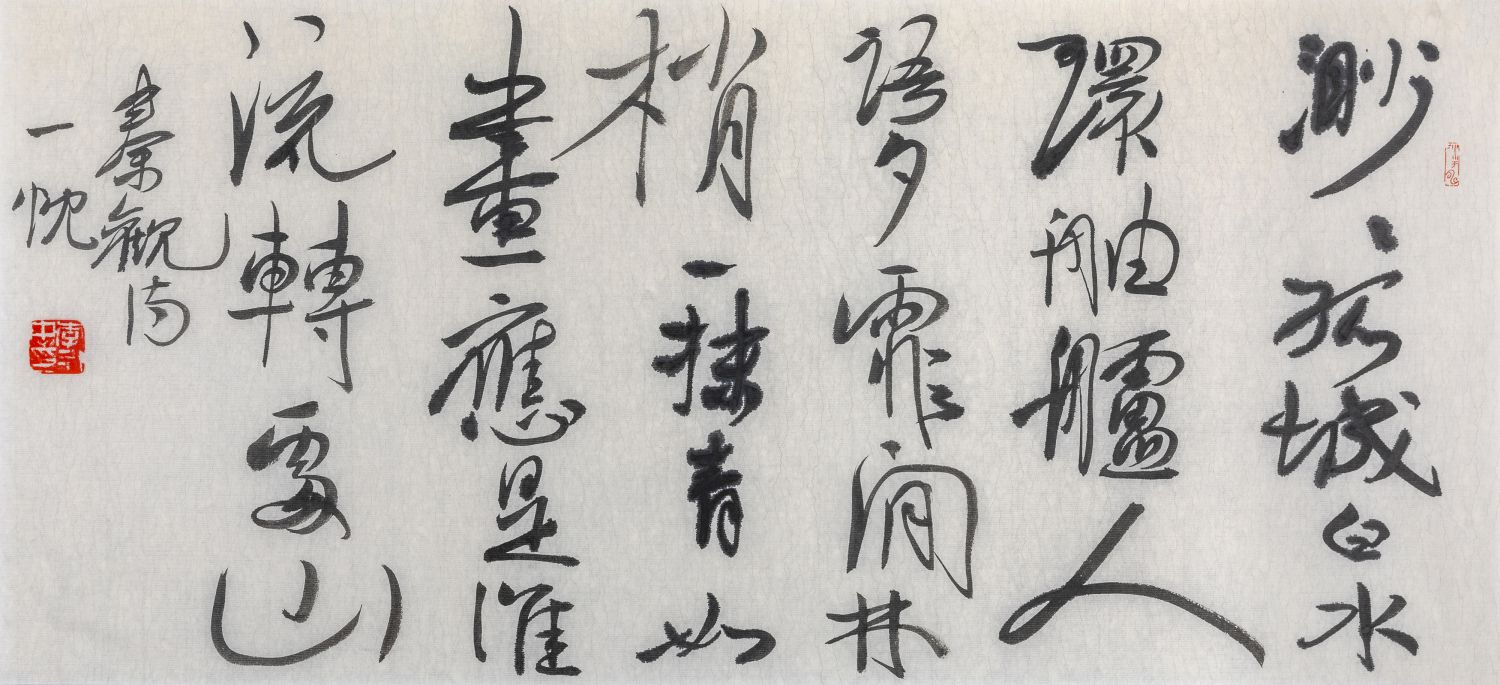 渺〻孤城白水
環舳艫人
語夕霏間林
梢一抹青如
畫應是淮
流轉處山
秦觀詩
一忱